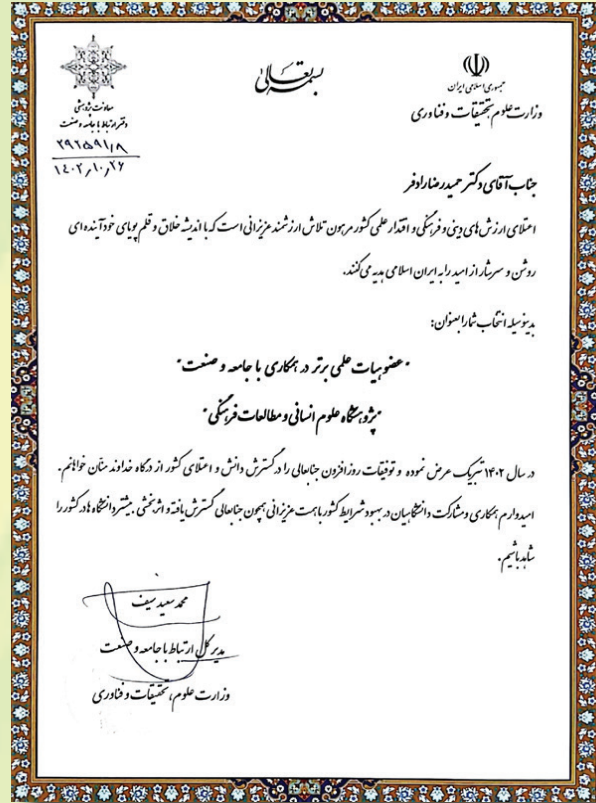 بسمه تعالی
جمهوری اسلامی ایران
وزارت علوم تحقیقات و فناوری
معاونت پژوهشی
دفتر ارتباط با جامعه و صنعت
۲۹۲۵۹۱/۸
۱۴۰۲/۱۰/۲۶
جناب آقای دکتر حمیدرضا رادفر
اعتلای ارزش های دینی و فرهنگی و اقتدار علمی کشور مرهون تلاش ارزشمند عزیزانی است که با اندیشه خلاق و قلم پویای خود آینده ای
روشن و سرشار از امید را به ایران اسلامی هدیه می کنند.
بدینوسیله انتخاب شما را بعنوان:
"عضو هیات علمی برتر در همکاری با جامعه و صنعت"
"پژوهشگاه علوم انسانی و مطالعات فرهنگی"
در سال ۱۴۰۲ تبریک عرض نموده و توفیقات روزافزون جنابعالی را در گسترش دانش و اعتلای کشور از درگاه خداوند منان خواهانم.
امیدوارم همکاری و مشارکت دانشگاهیان در بهبود شرایط کشور با همت عزیزانی همچون جنابعالی گسترش یافته و اثربخشی بیشتر دانشگاه ها در کشور را
شاهد باشیم.
محمد سعید سیف
مدیر کل ارتباط با جامعه و صنعت
وزارت علوم، تحقیقات و فناوری